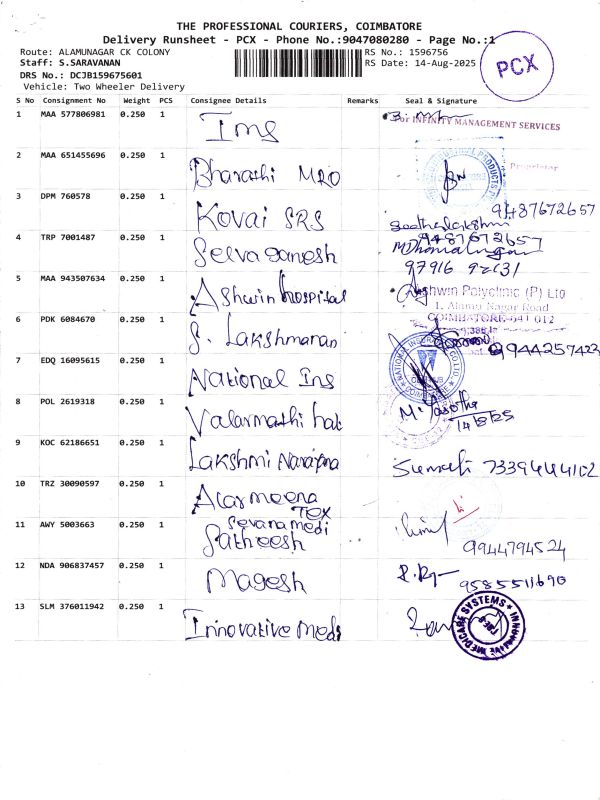 THE PROFESSIONAL COURIERS, COIMBATORE
Delivery Runsheet - PCX - Phone No.:9047080280 - Page No.:1
Route: ALAMUNAGAR CK COLONY
RS No.: 1596756
Staff: S.SARAVANAN
RS Date: 14-Aug-2025
DRS No.: DCJB159675601
Vehicle: Two Wheeler Delivery
PCX
S No Consignment No Weight PCS Consignee Details Remarks Seal & Signature
1 MAA 577806981 0.250 1 Ims
For INFINITY MANAGEMENT SERVICES
Proprietor
2 MAA 651455696 0.250 1 Bharathi MRO
3 DPM 760578 0.250 1 Kovai SRS 9487672657
4 TRP 7001487 0.250 1 Selva ganesh 9487672657
97916 92131
5 MAA 943507634 0.250 1 Ashwin hospital Ashwin Polyclinic (P) Ltd
1, Alamu Nagar Road
COIMBATORE-641 012
6 PDK 6084670 0.250 1 S. Lakshmanan 9944257423
7 EDQ 16095615 0.250 1 National Ins
NATIONAL INSURANCE CO LTD
8 POL 2619318 0.250 1 Valarmathi M. Yasotha
14/8/25
9 KOC 62186651 0.250 1 Lakshmi Narayana Sumathi 7339444102
10 TRZ 30090597 0.250 1 Alarmeena
Tex
11 AWY 5003663 0.250 1 Sevana medi
Satheesh 9944794524
12 NDA 906837457 0.250 1 Magesh 9585511690
13 SLM 376011942 0.250 1 Innovative Meds
INNOVATIVE MEDICARE SYSTEMS